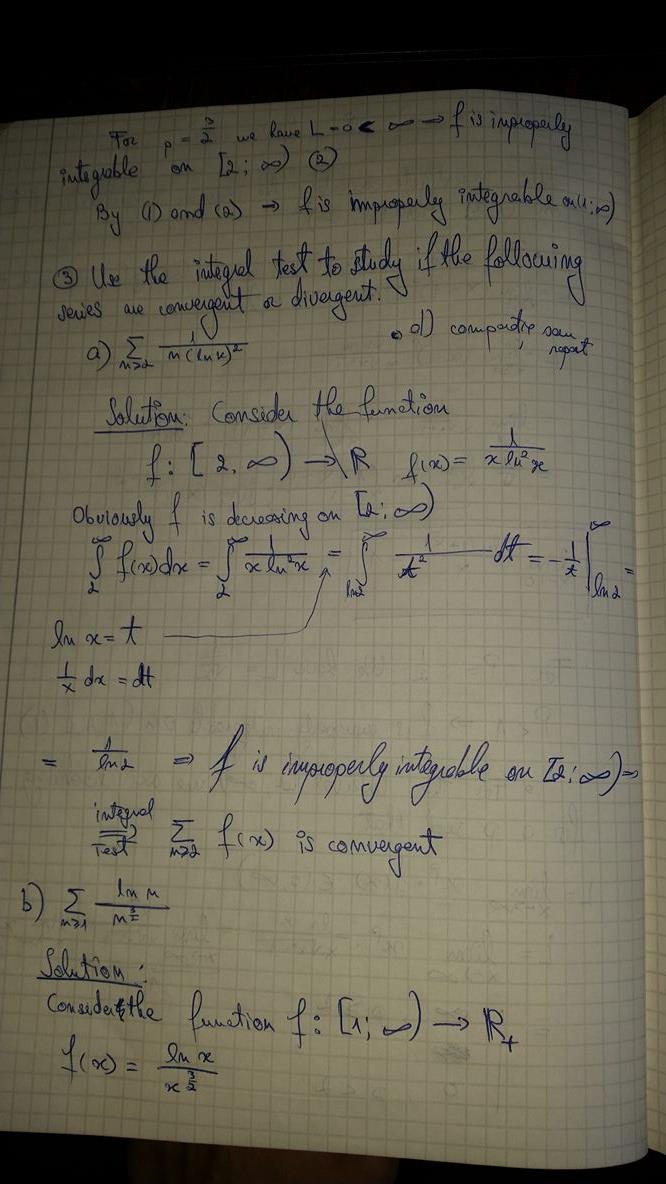 For p = 3/2 we have L = 0 < ∞ → f is improperly
integrable on [2; ∞) (2)
By (1) and (2) → f is improperly integrable on (1; ∞)
(3) Use the integral test to study if the following
series are convergent or divergent.
a) ∑_{n≥2} 1/(n(ln n)^2)
• d)
Solution: Consider the function
f: [2, ∞) → ℝ f(x) = 1/(x ln^2 x)
Obviously f is decreasing on [2; ∞)
∫_2^∞ f(x)dx = ∫_2^∞ 1/(x ln^2 x) = ∫_{ln2}^∞ 1/t^2 dt = -1/t |_{ln2}^∞ =
ln x = t
1/x dx = dt
= 1/ln2 ⇒ f is improperly integrable on [2; ∞) ⇒
integral
⇒
Test ∑_{n≥2} f(x) is convergent
b) ∑_{n≥1} ln n / n^{3/2}
Solution:
Consider the function f: [1; ∞) → ℝ_+
f(x) = ln x / x^{3/2}